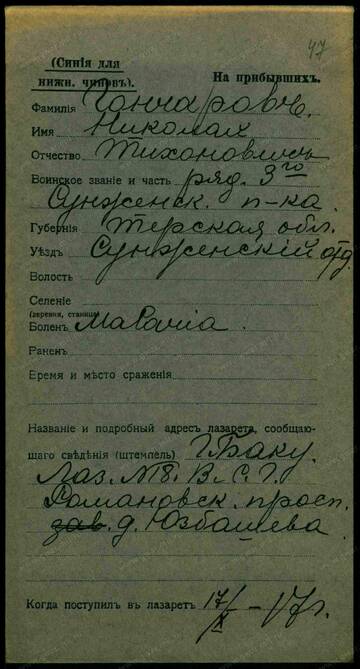 47
(Синія для
нижн. чиновъ).
На прибывшихъ.
Фамилія Гончаровъ.
Имя Николай
Отчество Тихановичъ
Воинское званіе и часть ряд. 3го
Сунженск. п-ка
Губернія Терская обл.
Уѣздъ Сунженскій отд.
Волость
Селеніе
(деревня, станица)
Боленъ Малярія.
Раненъ
Время и мѣсто сраженія
Названіе и подробный адресъ лазарета, сообщаю-
щаго свѣдѣнія (штемпель) Г. Баку.
Лаз. №8. В. С. Г.
Романовск. просп.
зав. д. Юзбашева
Когда поступилъ въ лазаретъ 17/X - 17г.